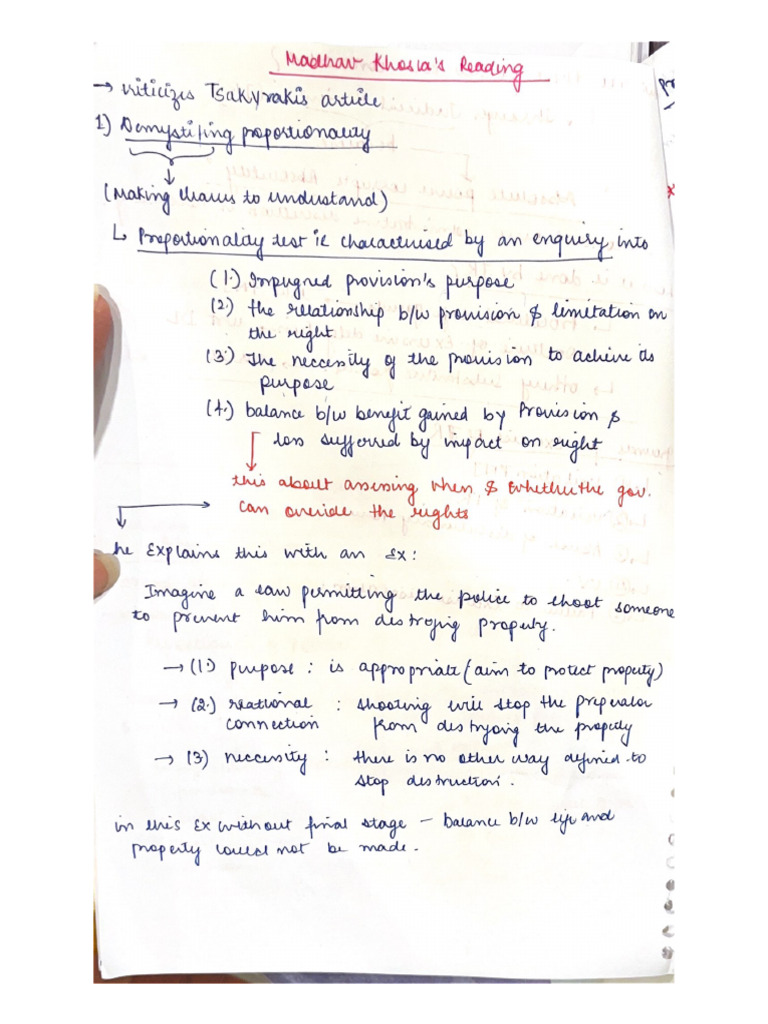 Madhav Khosla's Reading
→ criticizes Tsakyrakis article
1) Demystifing proportionality
(Making theirs to understand)
↳ Proportionality test is characterised by an enquiry into
(1.) Impugned provision's purpose
(2.) the relationship b/w provision & limitation on
the right.
(3.) The neccesity of the provision to achieve its
purpose
(4.) balance b/w benefit gained by Provision &
loss sufferred by impact on right
this about assessing when & whether the gov.
can overide the rights
he Explains this with an Ex:
Imagine a law permitting the police to shoot someone
to prevent him from destroying property.
→ (1.) purpose : is appropriate (aim to protect property)
→ (2.) reational : shooting will stop the preperator
connection from destrying the property
→ (3) neccesity : there is no other way defined to
stop destruction.
in this Ex without final stage – balance b/w life and
property could not be made.